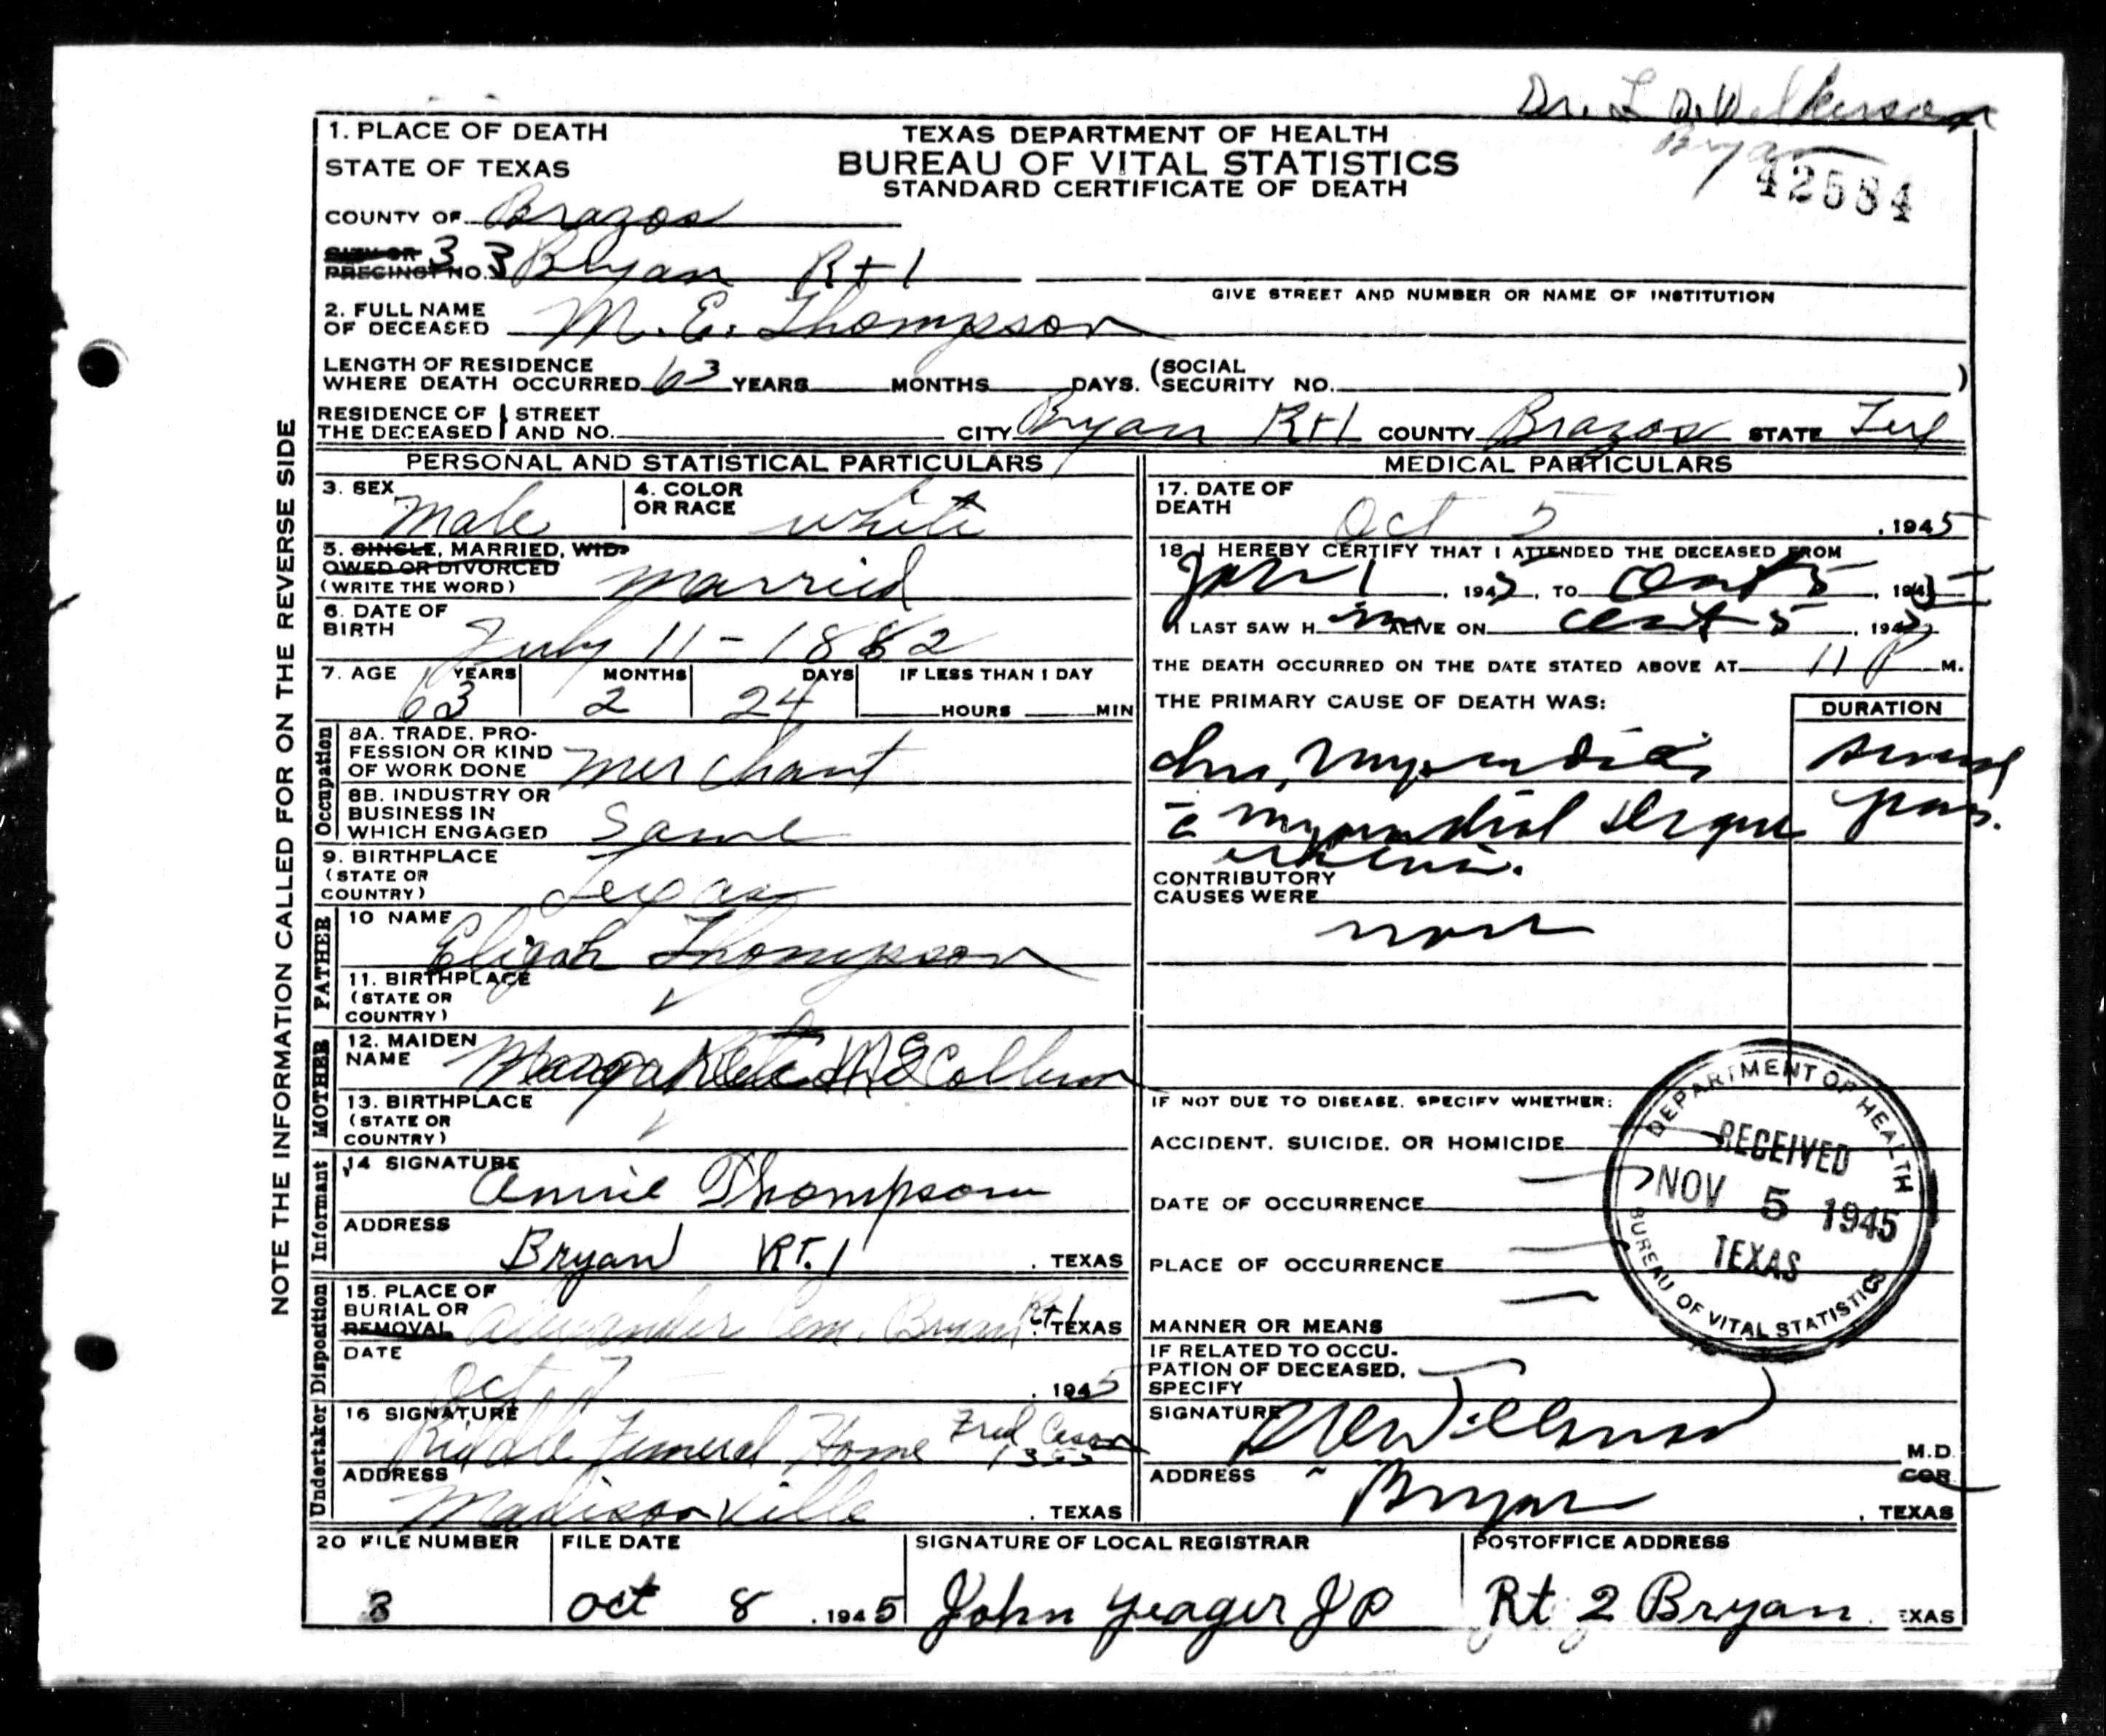 Dr. L. D. Wilkerson
Bryan
42584
1. PLACE OF DEATH
STATE OF TEXAS
TEXAS DEPARTMENT OF HEALTH
BUREAU OF VITAL STATISTICS
STANDARD CERTIFICATE OF DEATH
COUNTY OF Brazos
CITY OR
PRECINCT NO. 3 3 Bryan Rt 1
GIVE STREET AND NUMBER OR NAME OF INSTITUTION
2. FULL NAME
OF DECEASED M. E. Thompson
LENGTH OF RESIDENCE
WHERE DEATH OCCURRED 63 YEARS MONTHS DAYS. (SOCIAL SECURITY NO. )
RESIDENCE OF THE DECEASED STREET AND NO. CITY Bryan Rt 1 COUNTY Brazos STATE Tex
PERSONAL AND STATISTICAL PARTICULARS
3. SEX Male
4. COLOR OR RACE white
5. SINGLE, MARRIED, WID-
OWED OR DIVORCED
(WRITE THE WORD) married
6. DATE OF
BIRTH July 11 - 1882
7. AGE YEARS MONTHS DAYS IF LESS THAN 1 DAY
63 2 24 HOURS MIN
Occupation
8A. TRADE, PRO-
FESSION OR KIND
OF WORK DONE merchant
8B. INDUSTRY OR
BUSINESS IN
WHICH ENGAGED Same
9. BIRTHPLACE
(STATE OR
COUNTRY) Texas
FATHER
10 NAME Elijah Thompson
11. BIRTHPLACE
(STATE OR
COUNTRY)
MOTHER
12. MAIDEN
NAME McCollum
13. BIRTHPLACE
(STATE OR
COUNTRY)
Informant
14 SIGNATURE Annie Thompson
ADDRESS Bryan Rt. 1 . TEXAS
Disposition
15. PLACE OF
BURIAL OR
REMOVAL Alexander Cem. Bryan Rt 1 . TEXAS
DATE Oct 7 . 1945
Undertaker
16 SIGNATURE Riddle Funeral Home Fred Cason
ADDRESS Madisonville . TEXAS
MEDICAL PARTICULARS
17. DATE OF
DEATH Oct 5 . 1945
18. I HEREBY CERTIFY THAT I ATTENDED THE DECEASED FROM
1 , 194 , TO 5 , 1945
I LAST SAW H im ALIVE ON 5 , 194
THE DEATH OCCURRED ON THE DATE STATED ABOVE AT 11 P M.
THE PRIMARY CAUSE OF DEATH WAS: DURATION
several
myocardial years.
CONTRIBUTORY
CAUSES WERE
none
IF NOT DUE TO DISEASE, SPECIFY WHETHER:
ACCIDENT, SUICIDE, OR HOMICIDE
DATE OF OCCURRENCE
PLACE OF OCCURRENCE
MANNER OR MEANS
IF RELATED TO OCCU-
PATION OF DECEASED,
SPECIFY
DEPARTMENT OF HEALTH
RECEIVED
NOV 5 1945
TEXAS
BUREAU OF VITAL STATISTICS
SIGNATURE M.D.
COR
ADDRESS Bryan . TEXAS
20 FILE NUMBER FILE DATE SIGNATURE OF LOCAL REGISTRAR POSTOFFICE ADDRESS
3 Oct 8 . 1945 John Yeager JP Rt 2 Bryan . EXAS
NOTE THE INFORMATION CALLED FOR ON THE REVERSE SIDE